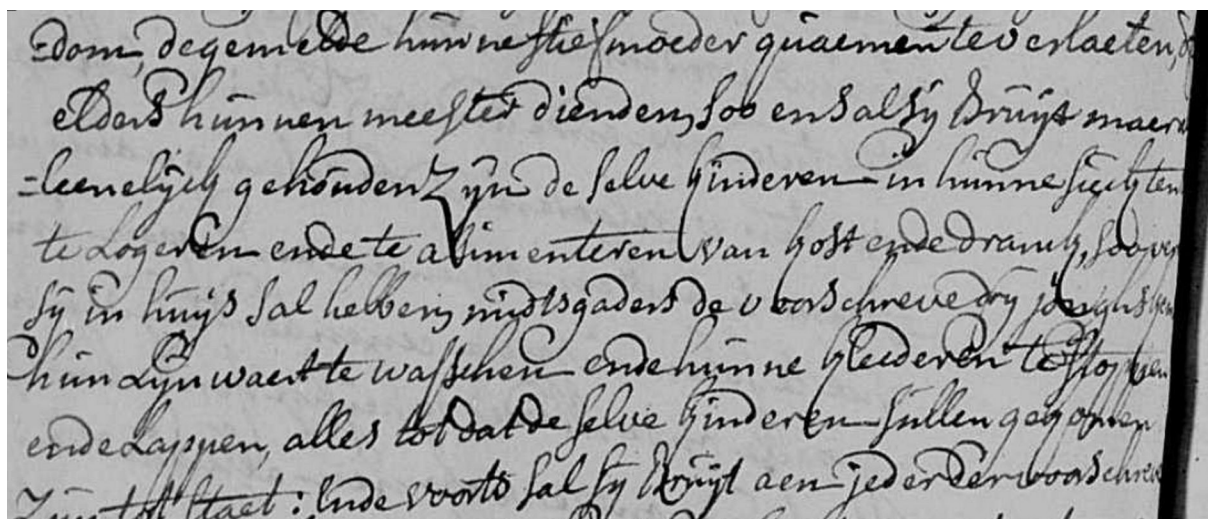 =dom, degemelde hunne stiefmoeder quaemen te verlaeten, of
elders hunnen meester dienden, soo en sal sy Bruyt maer
=leenelyck gehouden Zyn de selve kinderen in hunne sieckten
te Logeren ende te alimenteren van kost ende dranck, soo
sy in huys sal hebben, midtsgaders de voorschreve dry
hun Lynwaert te wasschen ende hunne kleederen te stoppen
ende Lappen, alles tot dat de selve kinderen sullen gekomen
Zyn tot staet: Ende voorts sal sy Bruyt aen jeder der voorschreve